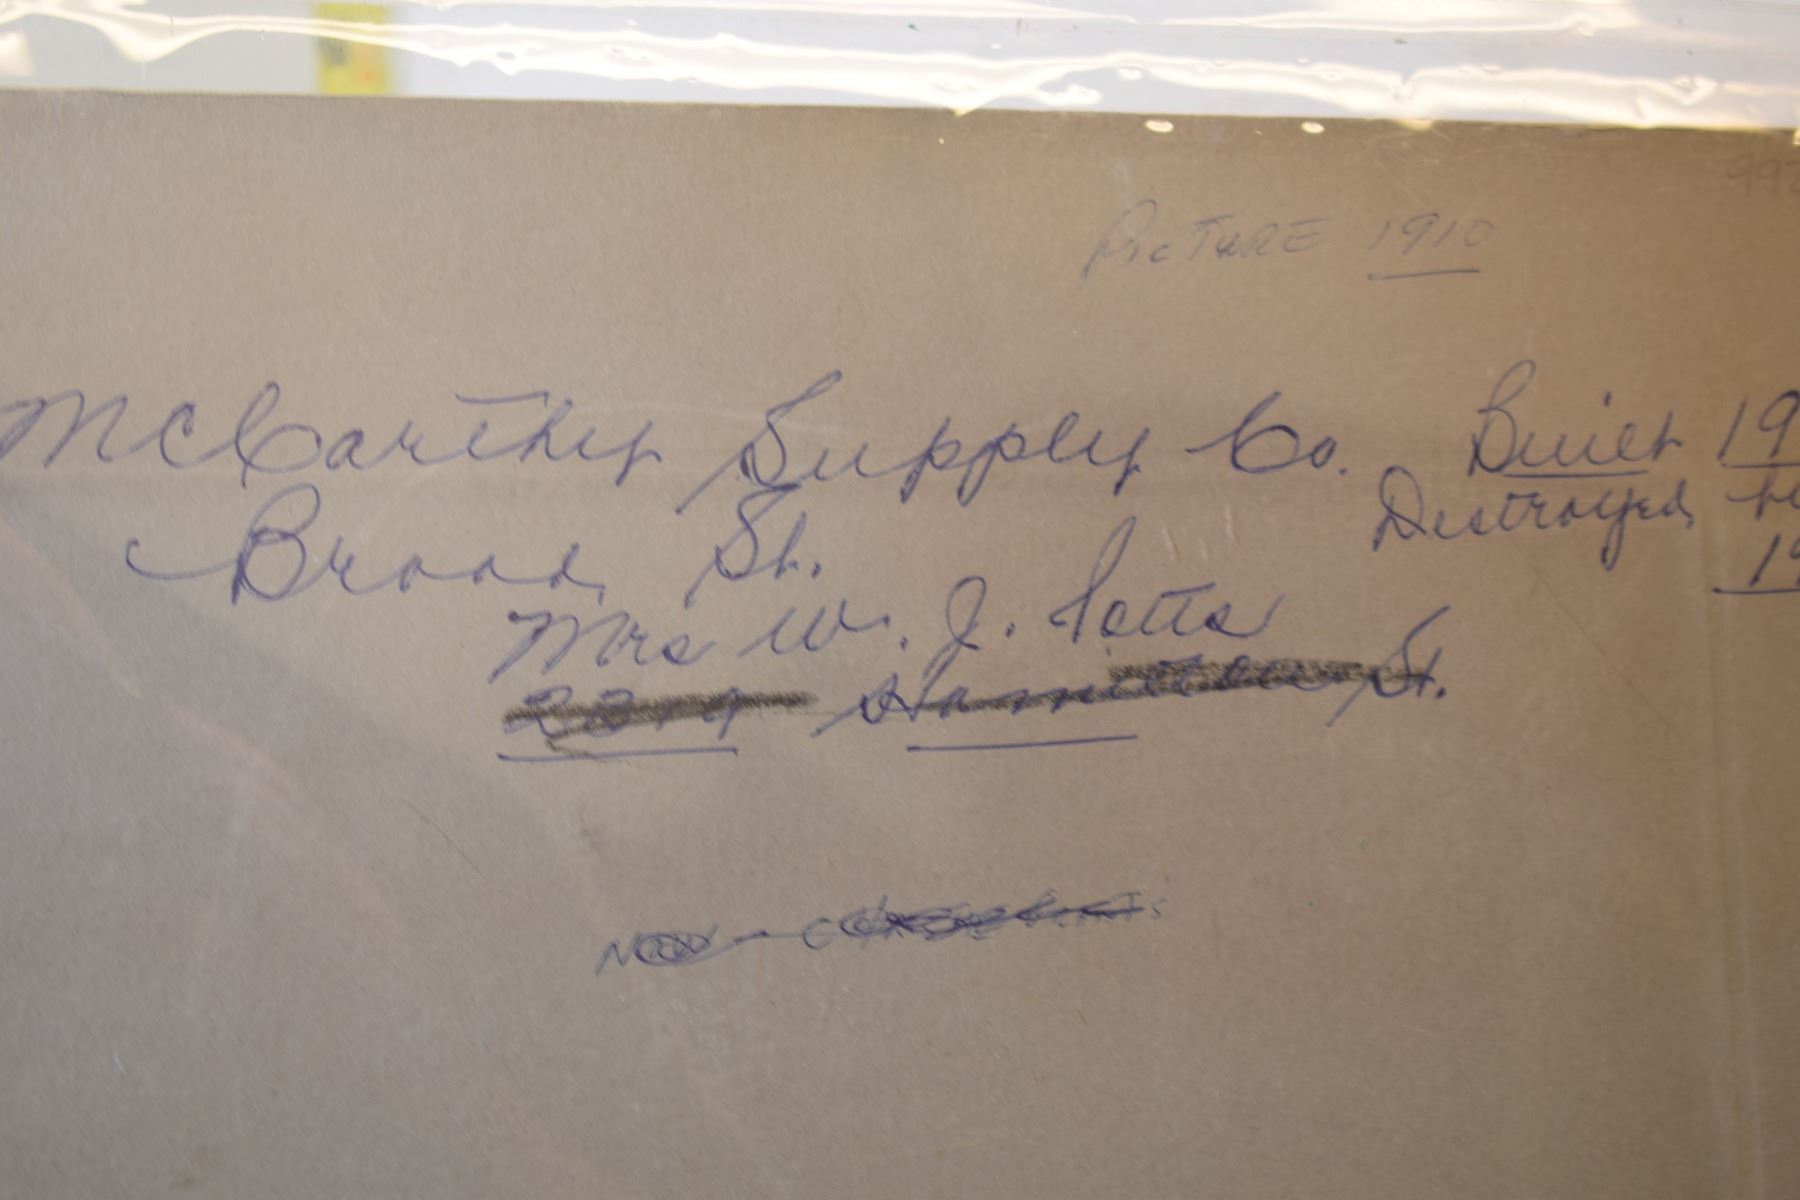 PICTURE 1910
McCarthy Supply Co. Built 19
Broad St. Destroyed
19
Mrs W. J.
St.
NOW -